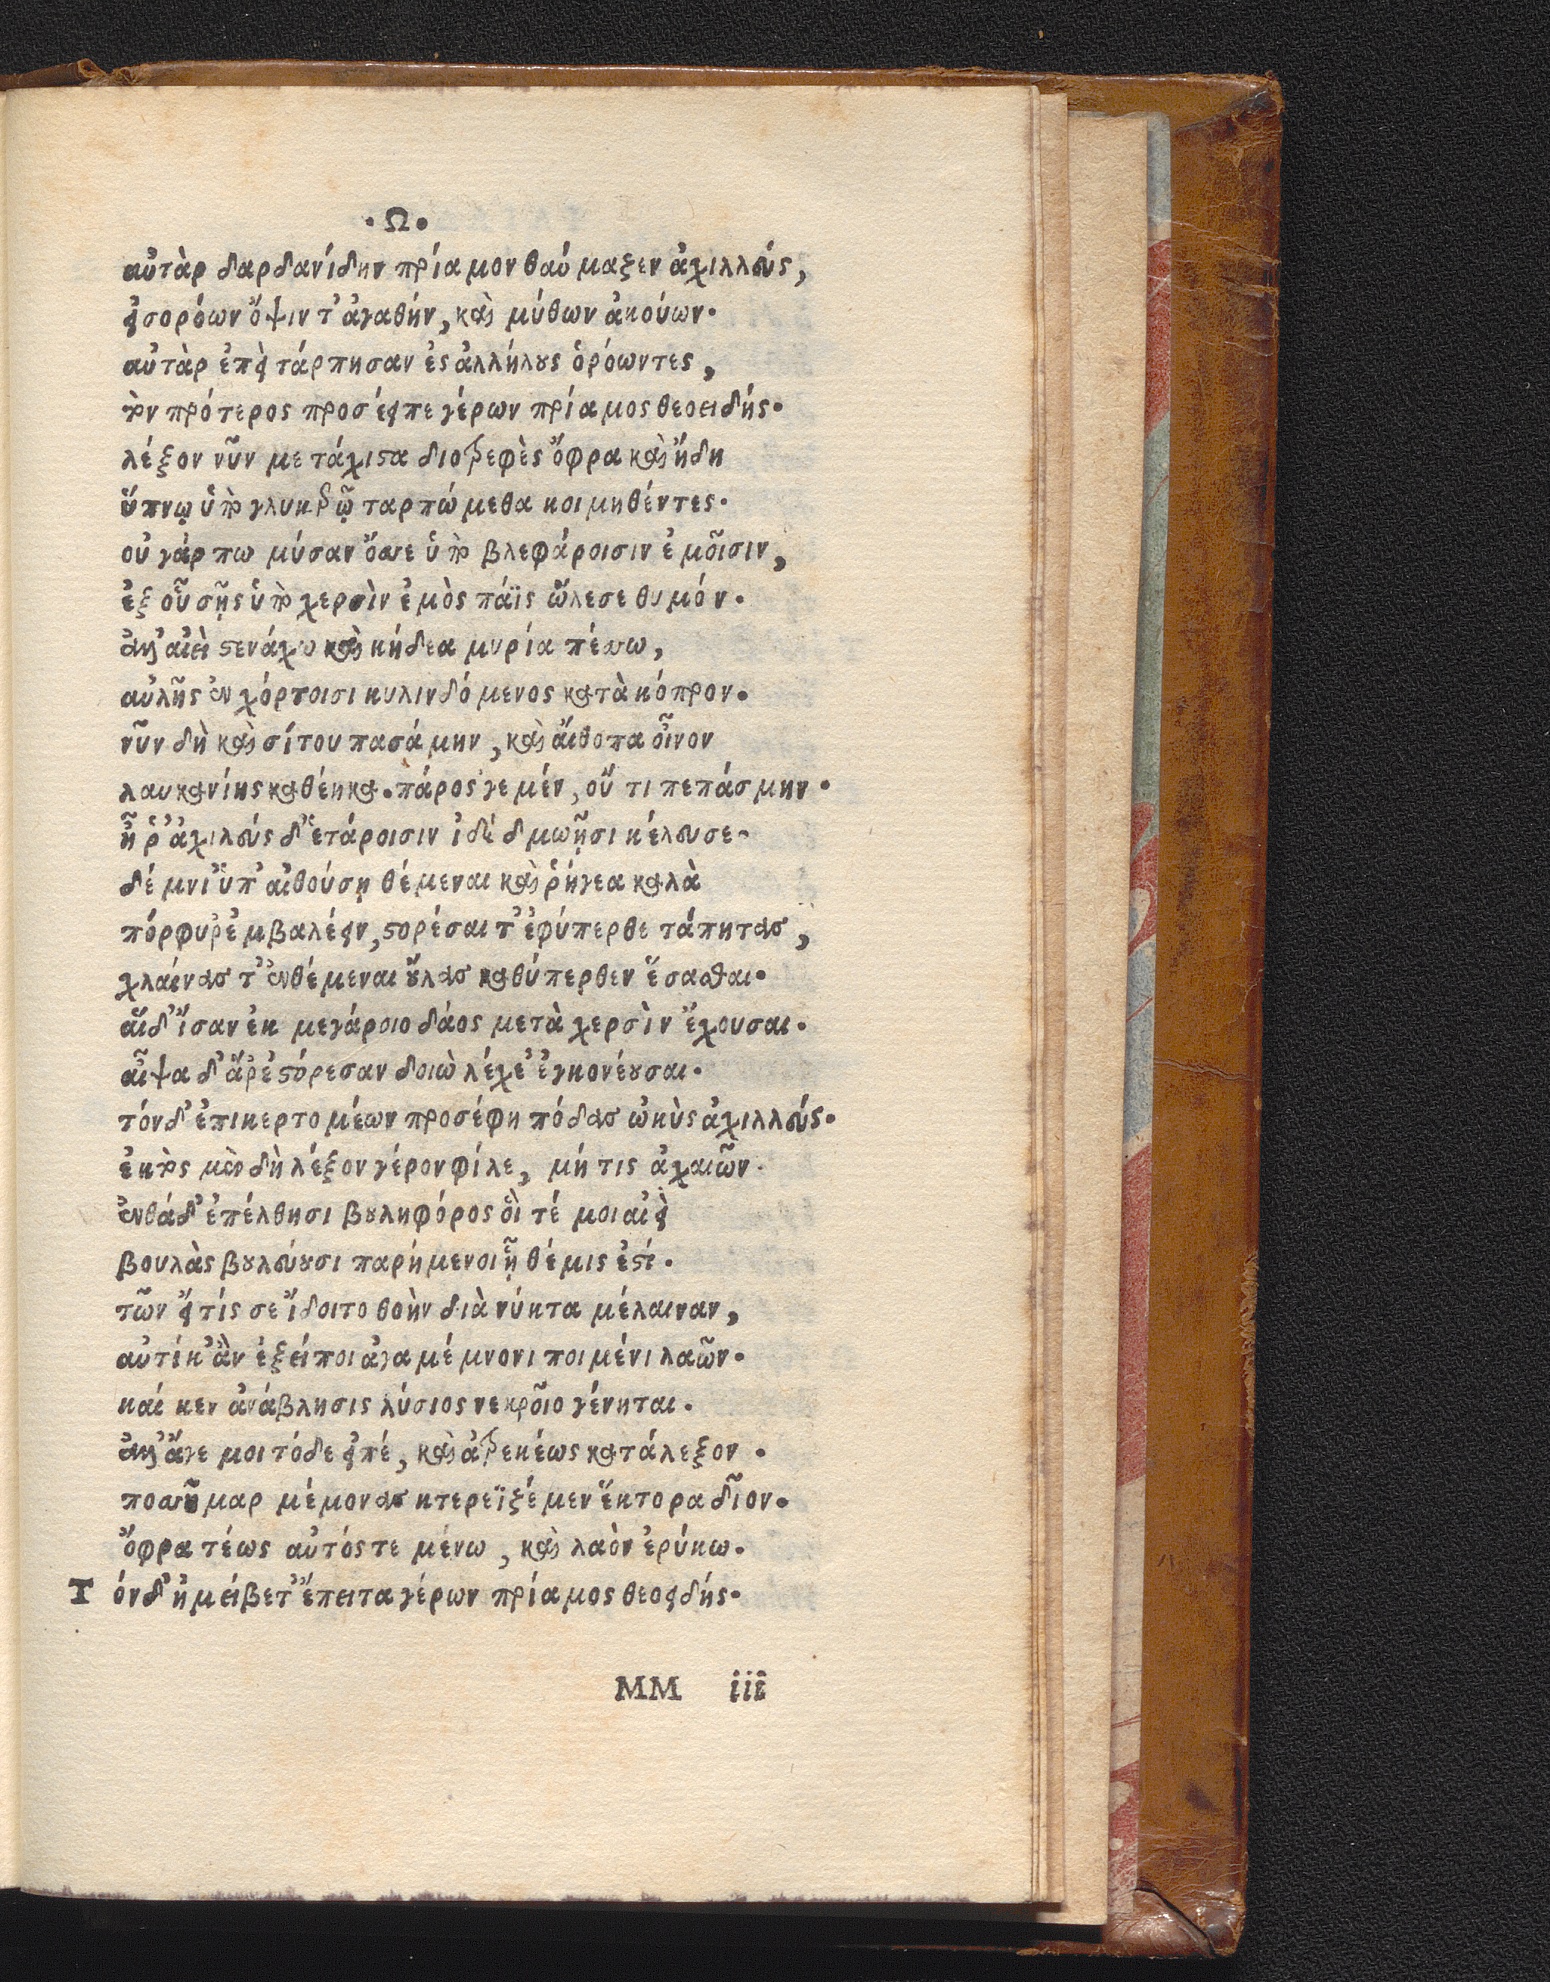 ·Ω·
αὐτὰρ δαρδανίδην πρίαμον θαύμαξεν ἀχιλλεύς,
εἰσορόων ὄψιν τ' ἀγαθήν, καὶ μύθων ἀκούων·
αὐτὰρ ἐπεὶ τάρπησαν ἐς ἀλλήλους ὁρόωντες,
τὸν πρότερος προσέειπε γέρων πρίαμος θεοειδής·
λέξον νῦν με τάχιστα διοτρεφὲς ὄφρα καὶ ἤδη
ὕπνῳ ὑπὸ γλυκερῷ ταρπώμεθα κοιμηθέντες·
οὐ γάρ πω μύσαν ὄσσε ὑπὸ βλεφάροισιν ἐμοῖσιν,
ἐξ οὗ σῇς ὑπὸ χερσὶν ἐμὸς πάϊς ὤλεσε θυμόν·
ἀλλ' αἰεὶ στενάχω καὶ κήδεα μυρία πέσσω,
αὐλῆς ἐν χόρτοισι κυλινδόμενος κατὰ κόπρον·
νῦν δὴ καὶ σίτου πασάμην, καὶ αἴθοπα οἶνον
λαυκανίης καθέηκα. πάρος γε μέν, οὔ τι πεπάσμην·
ἦ ῥ' ἀχιλεύς δ' ἑτάροισιν ἰδὲ δμωῇσι κέλευσε·
δέμνι' ὑπ' αἰθούσῃ θέμεναι καὶ ῥήγεα καλὰ
πόρφυρ' ἐμβαλέειν, στορέσαι τ' ἐφύπερθε τάπητας,
χλαίνας τ' ἐνθέμεναι οὔλας καθύπερθεν ἕσασθαι·
αἵ δ' ἴσαν ἐκ μεγάροιο δάος μετὰ χερσὶν ἔχουσαι·
αἶψα δ' ἄρ' ἐστόρεσαν δοιὼ λέχε' ἐγκονέουσαι·
τόν δ' ἐπικερτομέων προσέφη πόδας ὠκὺς ἀχιλλεύς·
ἐκτὸς μὲν δὴ λέξον γέρον φίλε, μή τις ἀχαιῶν·
ἐνθάδ' ἐπέλθησι βουληφόρος οἳ τέ μοι αἰεὶ
βουλὰς βουλεύουσι παρήμενοι ᾗ θέμις ἐστί·
τῶν εἴ τίς σε ἴδοιτο θοὴν διὰ νύκτα μέλαιναν,
αὐτίκ' ἂν ἐξείποι ἀγαμέμνονι ποιμένι λαῶν·
καί κεν ἀνάβλησις λύσιος νεκροῖο γένηται·
ἀλλ' ἄγε μοι τόδε εἰπέ, καὶ ἀτρεκέως κατάλεξον·
ποσσῆμαρ μέμονας κτερεϊξέμεν ἕκτορα δῖον·
ὄφρα τέως αὐτός τε μένω, καὶ λαὸν ἐρύκω·
Τόν δ' ἠμείβετ' ἔπειτα γέρων πρίαμος θεοειδής·
MM iii